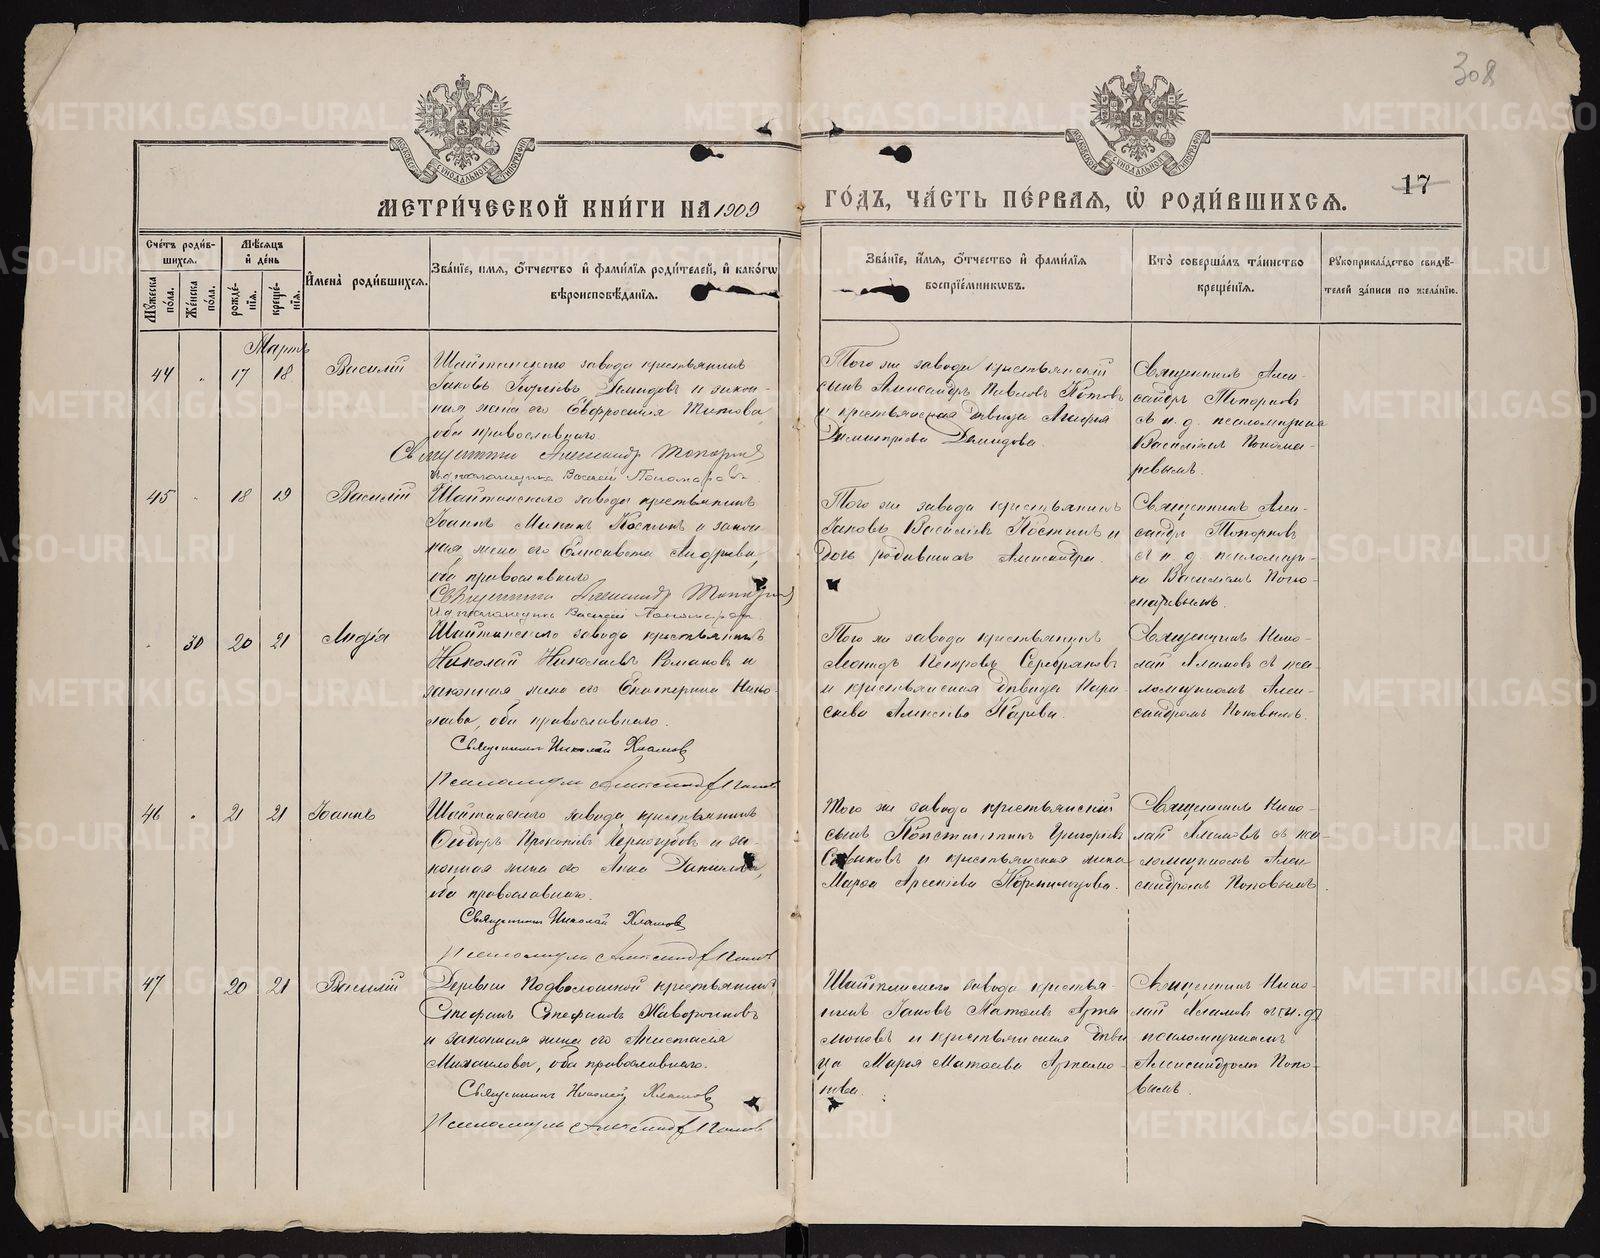 308
17
МЕТРИ́ЧЕСКОЙ КНИ́ГИ НА 1909
ГО́ДЪ, ЧА́СТЬ ПЕ́РВАЯ, Ѿ РОДИ́ВШИХСЯ.
Сче́тъ роди́в-
шихся.
Мꙋ́жеска по́ла.
Же́нска по́ла.
Мѣ́сяцъ
и҆ де́нь
рожде́-
нїя.
креще́-
нїя.
И҆мена̀ роди́вшихся.
Зва́нїе, и́мя, ѻ҆́тчество и҆ фами́лїя роди́телей, и҆ како́гѡ
вѣроисповѣ́данїя.
Зва́нїе, и́мя, ѻ҆́тчество и҆ фами́лїя
воспрїе́мникѡвъ.
Кто̀ соверша́лъ та́инство
креще́нїя.
Рꙋкоприкла́дство свидѣ́-
телей за́писи по жела́нїю.
Мартъ
44
17
18
Василій
Шайтанскаго завода крестьянинъ
Іаковъ Демидовъ и закон-
ная жена его Евфросинія Титова,
оба православнаго.
Священникъ Александр Топорков
И.д. псаломщика Василій Пономарев
Того же завода крестьянскій
сынъ Александръ Павловъ
и крестьянская дѣвица
Димитріева Демидова.
Священникъ Алек-
сандръ Топорковъ
съ и. д. псаломщика
Василіемъ Понома-
ревымъ.
45
18
19
Василій
Шайтанскаго завода крестьянинъ
Іоаннъ Костинъ и закон-
ная жена его Елисавета Андреева,
оба православнаго.
Священник Александр Топорков
И.д. псаломщика Василій Пономарев
Того же завода крестьянинъ
Іаковъ Василіевъ Костинъ и
дочь родившихъ Александра.
Священникъ Алек-
сандръ Топорковъ
съ и. д. псаломщи-
ка Василіемъ Поно-
маревымъ.
30
20
21
Лидія
Шайтанскаго завода крестьянинъ
Николай Николаевъ Романовъ и
законная жена его Екатерина Нико-
лаева, оба православнаго.
Священникъ Николай Хламов
Псаломщик Александр Попов
Того же завода крестьянинъ
Леонидъ Петровъ Серебряковъ
и крестьянская дѣвица Пара-
скева Алексѣева
Священникъ Нико-
лай Хламовъ съ пса-
ломщикомъ Алек-
сандромъ Поповымъ.
46
21
21
Іоаннъ
Шайтанскаго завода крестьянинъ
Ѳеодоръ Прокопіевъ Черногубовъ и за-
конная жена его Анна Данилова,
оба православнаго.
Священникъ Николай Хламов
Псаломщик Александр Попов
Того же завода крестьянскій
сынъ Константинъ Григорьевъ
и крестьянская жена
Марѳа Арсеніева Кормильцова.
Священникъ Нико-
лай Хламовъ съ пса-
ломщикомъ Алек-
сандромъ Поповымъ.
47
20
21
Василій
Деревни Подволошной крестьянинъ
Стефанъ Стефановъ Жаворонковъ
и законная жена его Анастасія
Михаилова, оба православнаго.
Священникъ Николай Хламов
Псаломщик Александр Попов
Шайтанскаго завода крестья-
нинъ Іаковъ Матѳіевъ Арта-
моновъ и крестьянская дѣви-
ца Марія Матѳіева Артамо-
нова.
Священникъ Нико-
лай Хламовъ съ и. д.
псаломщикомъ
Александромъ Попо-
вымъ.
METRIKI.GASO-URAL.RU